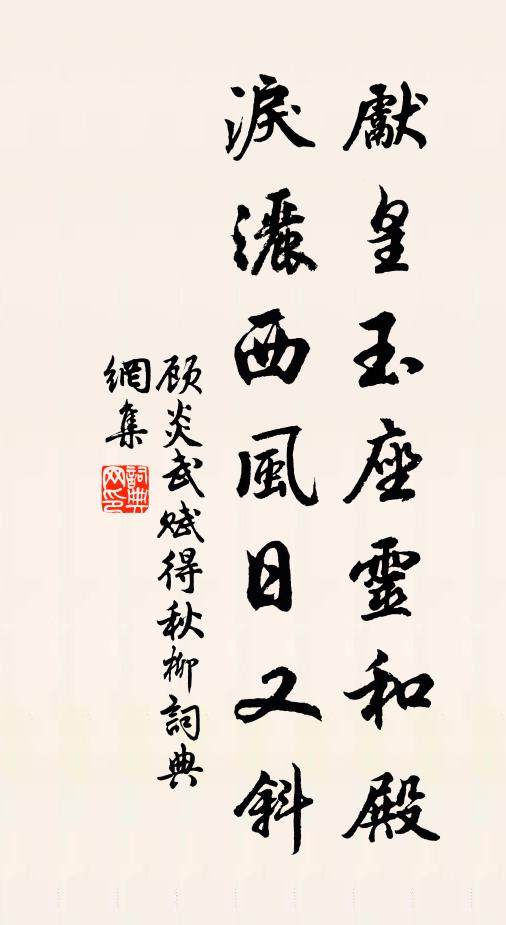 獻皇玉座靈和殿
淚灑西風日又斜
顧炎武賦得秋柳詞典
網集
詞典
网印